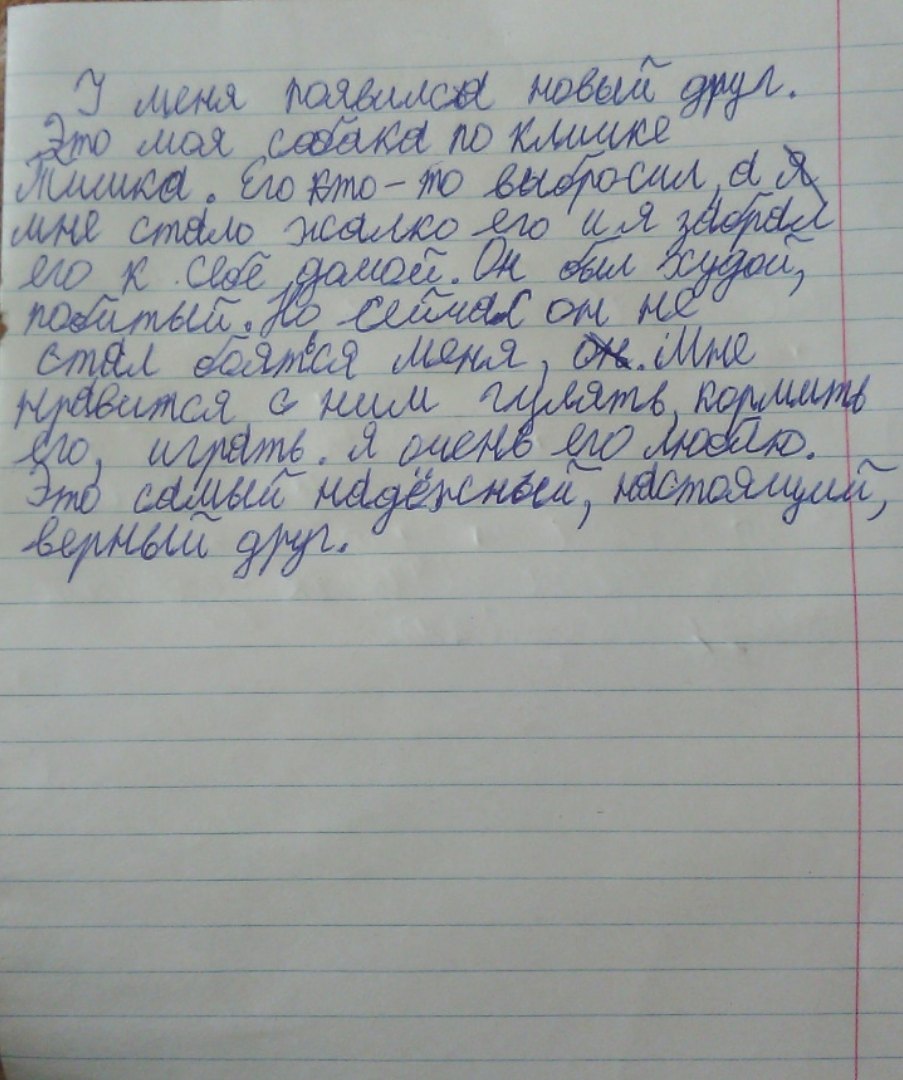 У меня появился новый друг.
Это моя собака по кличке
Тишка. Его кто-то выбросил, а я
мне стало жалко его и я забрал
его к себе домой. Он был худой,
побитый. Но сейчас он не
стал боятся меня, он. Мне
нравится с ним гулять, кормить
его, играть. Я очень его люблю.
Это самый надёжный, настоящий,
верный друг.